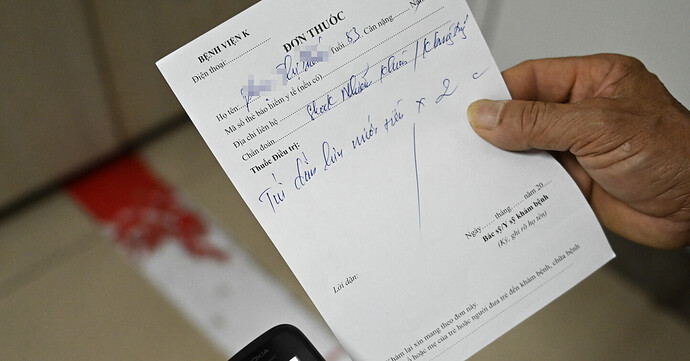 BỆNH VIỆN K
Điện thoại:
ĐƠN THUỐC
Họ tên: Thị tuổi 83. Cân nặng Nam
Mã số thẻ bảo hiểm y tế (nếu có)
Địa chỉ liên hệ
Chẩn đoán: Shock nhiễm khuẩn /
Thuốc Điều trị:
Túi dẫn lưu nước tiểu x 2 c
Ngày tháng năm 20
Bác sỹ/Y sỹ khám bệnh
(Ký, ghi rõ họ tên)
Lời dặn:
khám lại xin mang theo đơn này.
bố hoặc mẹ của trẻ hoặc người đưa trẻ đến khám bệnh, chữa bệnh